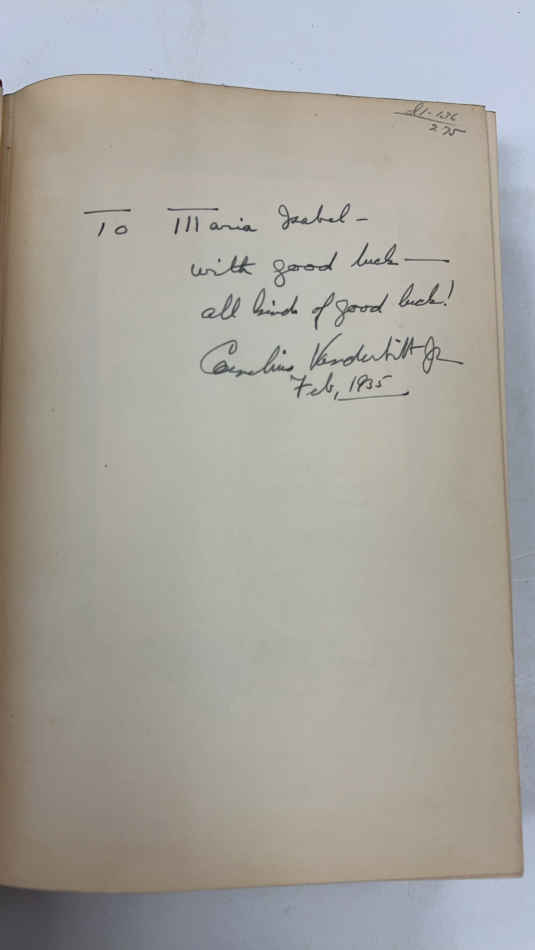 2 75
To Maria Isabel –
with good luck —
all kinds of good luck!
Cornelius Vanderbilt Jr
Feb, 1935